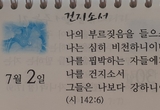 건지소서
나의 부르짖음을 들으
나는 심히 비천하니이
나를 핍박하는 자들에
나를 건지소서
그들은 나보다 강하니
(시 142:6)
7월 2일